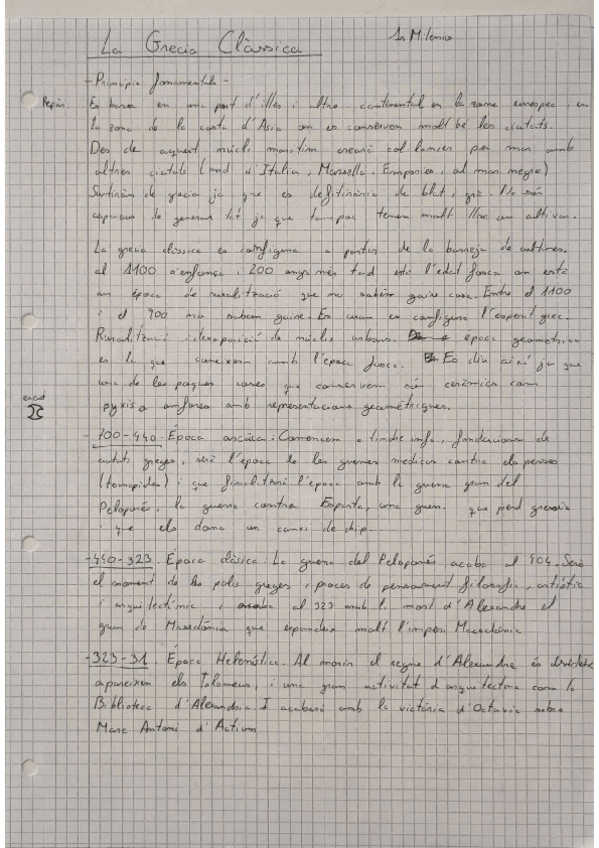 La Grecia Clàssica
1r Mil·lenni
- Principis fonamentals -
Repàs.
Es basa en una part d'illes i altre continental en la zona europea i en
la zona de la costa d'Asia on es conserven molt bé les ciutats.
Des de aquest nucli marítim crearà col·lonies per mar amb
altres ciutats (sud d'Italia, Marsella, Empories, al mar negre)
de grecia ja que es de blat i gra. No són
capaços de generar tot ja que tampoc tenen molt lloc on cultivar.
La grecia clàssica es configura a partir de la barreja de cultures.
al 1100 s'enfonsa i 200 anys més tard està l'edat fosca on està
un època de ruralització que no sabem gaire cosa. Entre el 1100
i el 900 no sabem gaire. Es quan es configura l'esperit grec.
Ruralització i desaparició de nuclis urbans. època geometrica
es la que coneixem amb l'època fosca. Es diu així ja que
una de les poques coses que conservem són ceràmica com
pyxis o amfores amb representacions geomètriques.
- 700-440. Època arcaica: Comencem a tindre info, fundacions de
ciutats gregues, serà l'època de les guerres mediques contra els perses
(termopiles) i que finalitzarà l'època amb la guerra gran del
Peloponés, la guerra contra Esparta, una guerra que perd grecia
i que els dona un canvi de chip.
- 440-323. Època clàsica: La guerra del Peloponés acaba al 404. Serà
el moment de les polis gregues i proces de pensament filosofic, artístic
i arquitectònic i acaba al 323 amb la mort d'Alexandre el
gran de Macedònia que expandeix molt l'imperi Macedònic
- 323-31. Època Helenística. Al morir el regne d'Alexandre és divideix
apareixen els Tolomeus, i una gran activitat d'arquitectura com la
Biblioteca d'Alexandria. I acabarà amb la victòria d'Octavi sobre
Marc Antoni d'Actium